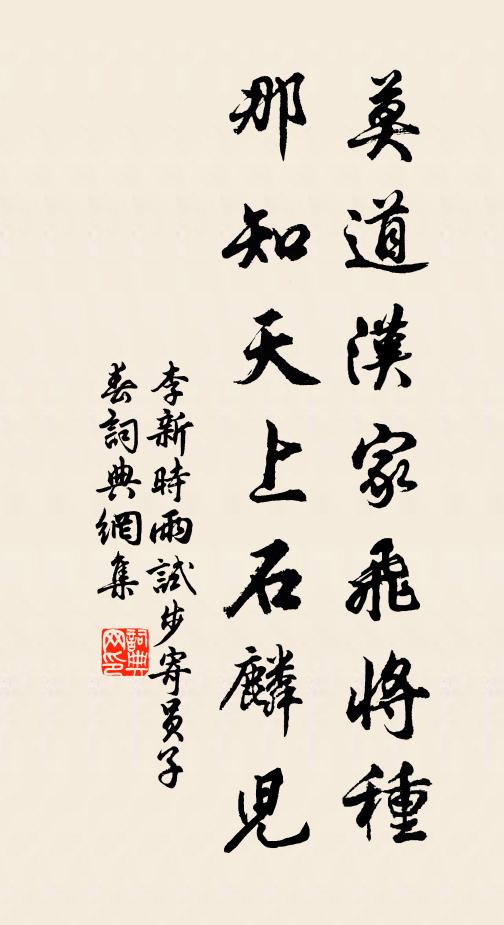 莫道漢家飛將種
那知天上石麟児
李新時雨試步寄員子
春詞典網集
詞典网印